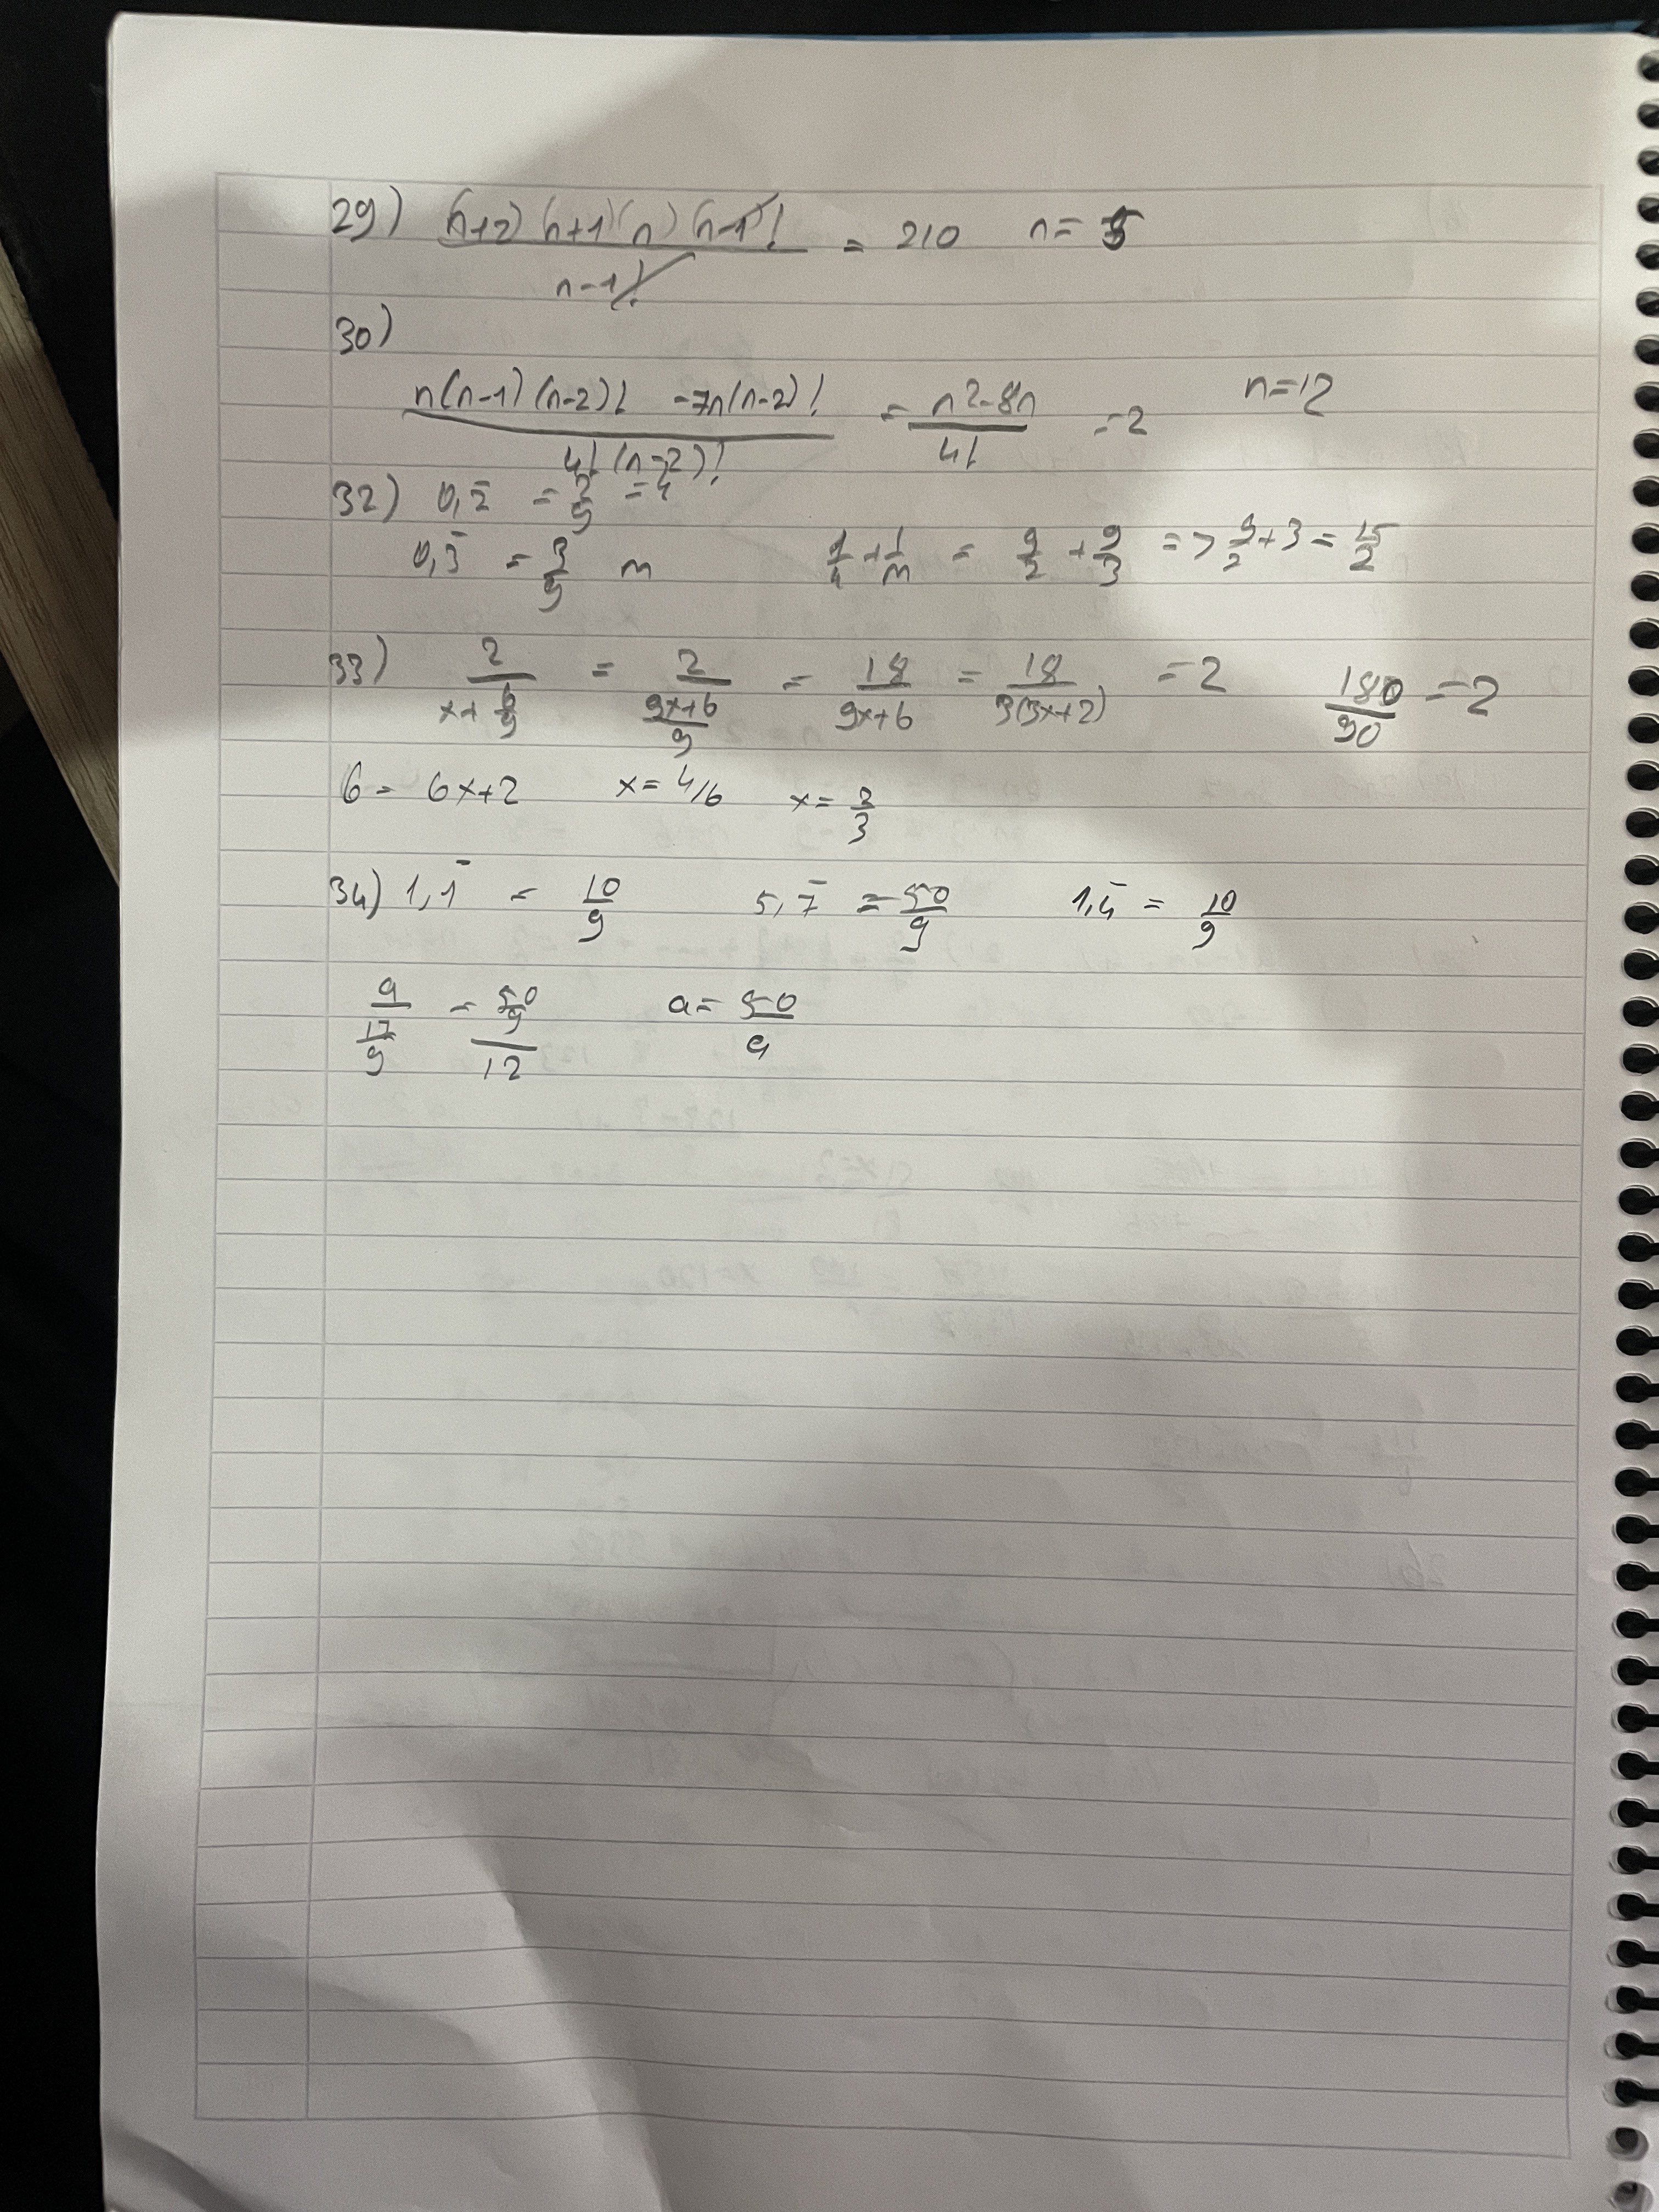 29) (n+2) (n+1) (n) (n-1)! / n-1! = 210 n = 5
30)
n(n-1) (n-2)! -7n(n-2)! / 4! (n-2)! = n2-8n / 4! = 2 n=12
32) 0,2̄ = 2/9 = 4
0,3̄ = 3/9 m 1/4 + 1/m = 9/2 + 9/3 => 9/2 + 3 = 15/2
33) 2 / (x + 6/9) = 2 / ((9x+6)/9) = 18 / (9x+6) = 18 / 3(3x+2) = 2 180/90 = 2
6 = 6x+2 x = 4/6 x = 2/3
34) 1,1̄ = 10/9 5,7̄ = 50/9 1,4̄ = 10/9
a / (17/9) = (50/9) / 12 a = 50/9